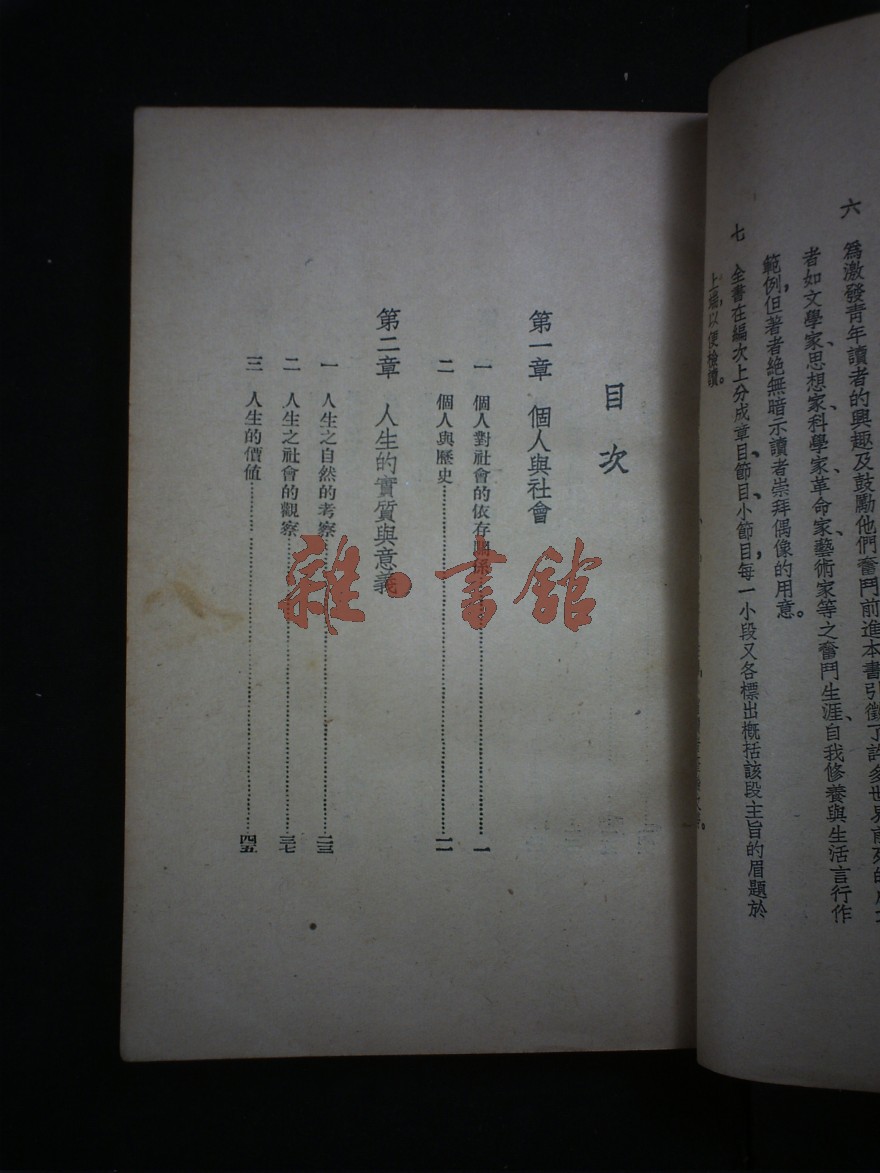 六 為激發青年讀者的興趣及鼓勵他們奮鬥前進本書引徵了許多世界前列的
者如文學家、思想家、科學家、革命家、藝術家等之奮鬥生涯、自我修養與生活言行作
範例，但著者絕無暗示讀者崇拜偶像的用意。
七 全書在編次上分成章目、節目、小節目，每一小段又各標出概括該段主旨的眉題於
上端，以便檢讀。
目次
第一章 個人與社會
一 個人對社會的依存關係……一
二 個人與歷史……一一
第二章 人生的實質與意義
一 人生之自然的考察……二三
二 人生之社會的觀察……三七
三 人生的價値……四五
雜·書館